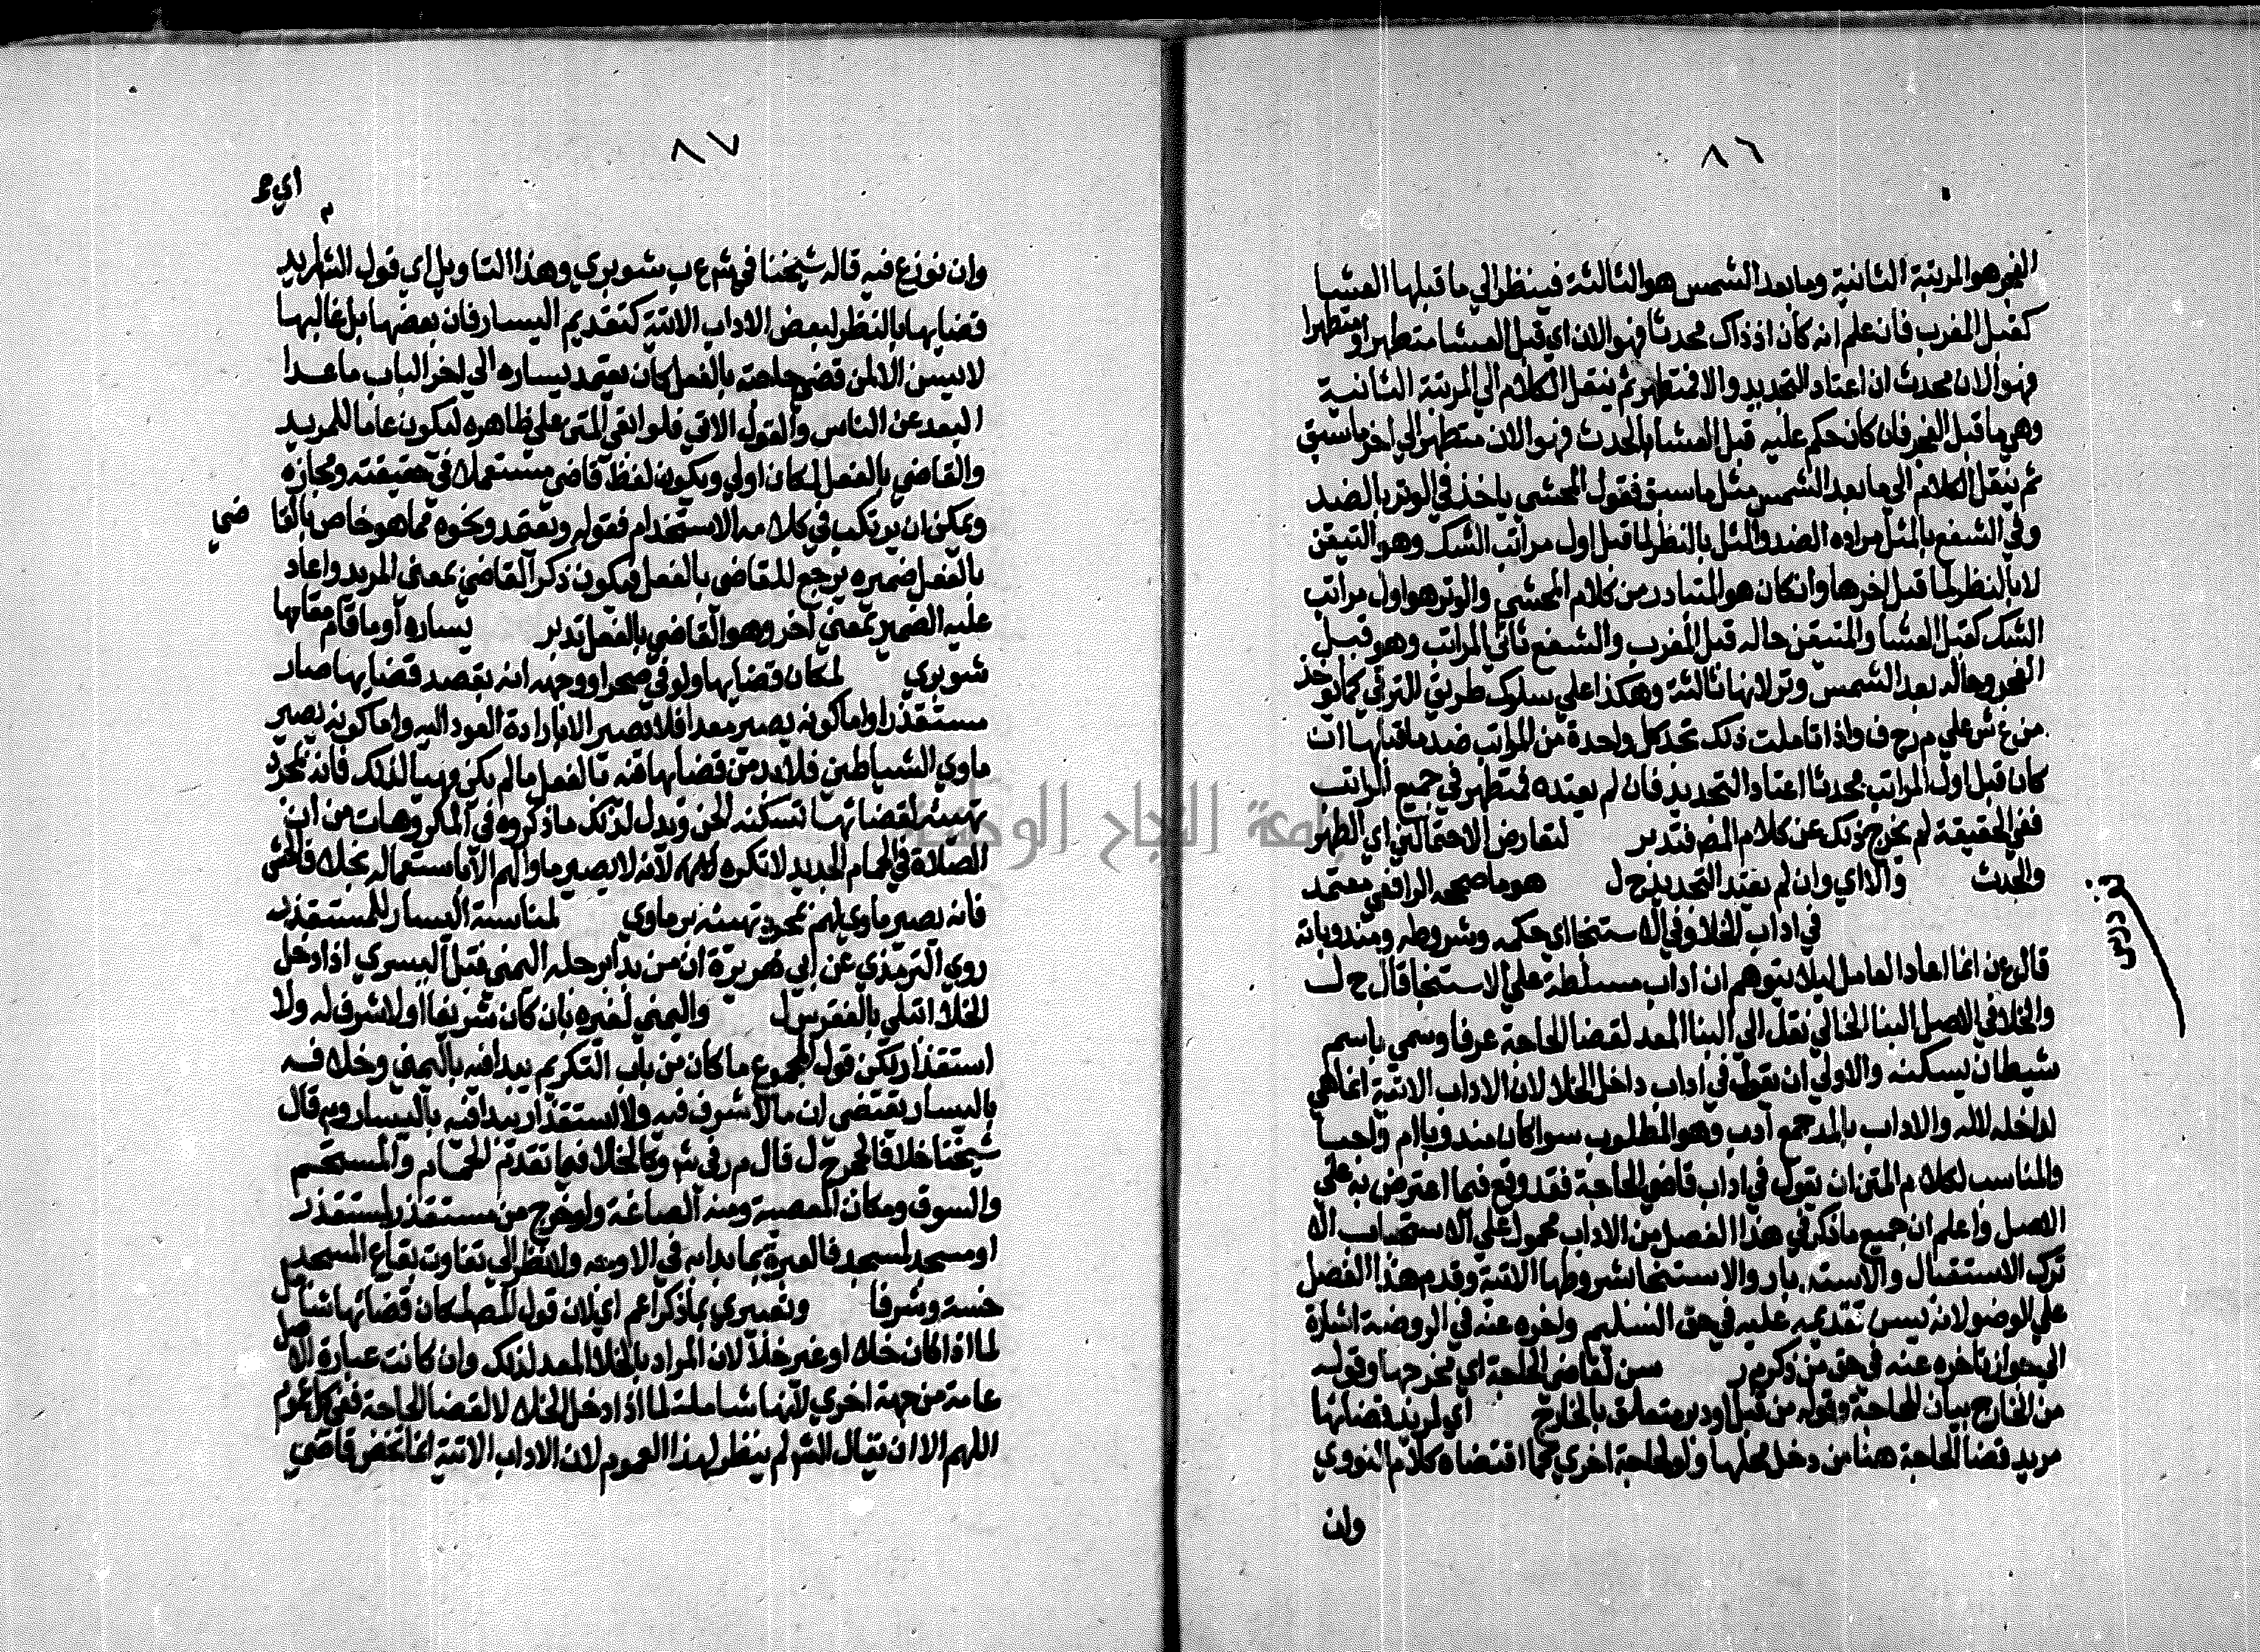 ٨٦
الفجر هو المرتبة الثانية وما بعد الشمس هو الثالثة فينظر الي ما قبلها العشا
كقبل المغرب فان علم انه كان اذ ذاك محدثا فهو الان اي قبل العشا متطهر او متطهرا
فهو الان محدث ان اعتاد التجديد والا فمتطهر ثم ينقل الكلام الي المرتبة الثانية
وهي ما قبل الفجر فان كان حكم عليه قبل العشا بالحدث فهو الان متطهر الي اخر ما سبق
ثم ينقل الكلام الي ما بعد الشمس مثل ما سبق فقول المحشي ياخذ في الوتر بالضد
وفي الشفع بالمثل مراده الضد والمثل بالنظر لما قبل اول مراتب الشك وهو التيقن
لا بالنظر لما قبل اخرها وان كان هو المتبادر من كلام المحشي والوتر هو اول مراتب
الشك كقبل العشا والمتيقن حاله قبل المغرب والشفع ثاني المراتب وهو قبل
الفجر وحاله بعد الشمس وتر لانها ثالثة وهكذا علي سلوك طريق الترقي كما يوخذ
من ع ش علي م ر ح ف واذا تاملت ذلك تجد كل واحدة من المراتب ضد ما قبلها ان
كان قبل اول المراتب محدثا اعتاد التجديد فان لم يعتده فمتطهر في جميع المراتب
ففي الحقيقة لم يخرج ذلك عن كلام المص فتدبر لتعارض الاحتمالين اي الطهر
والحدث والا اي وان لم يعتد التجديد ح ل هو ما صححه الرافعي معتمد
في اداب الخلا وفي الاستنجا اي حكمه وشروطه ومندوباته
قال ع ن انما اعاد العامل ليلا يتوهم ان اداب مسلطة علي الاستنجا قال ح ل
والخلا في الاصل البنا الخالي نقل الي البنا المعد لقضا الحاجة عرفا وسمي باسم
شيطان يسكنه والاولي ان يقول في اداب داخل الخلا لان الاداب الاتية انما هي
لداخله لا له والاداب بالمد جمع ادب وهو المطلوب سوا كان مندوبا ام واجبا
والمناسب لكلام المتن ان يقول في اداب قاضي الحاجة فقد وقع فيما اعترض به علي
الاصل واعلم ان جميع ما ذكر في هذا الفصل من الاداب محمول علي الاستحباب الا
ترك الاستقبال والاستدبار والاستنجا بشروطها الاتية وقدم هذا الفصل
علي الوضو لانه يسن تقديمه عليه في حق السليم واخره عنه في الروضة اشارة
الي جواز تاخره عنه في حق من ذكر م ر سن لقاضي الحاجة اي مخرجها وقوله
من الخارج بيان للحاجة وقوله من قبل او دبر متعلق بالخارج اي لمريد قضائها
مريد قضا الحاجة هنا من دخل محلها ولو لحاجة اخري كما اقتضاه كلام النووي
وان
٨٧
وان نوزع فيه قاله شيخنا في ش ع ب شوبري وهذا التاويل اي قول الش لمريد
قضايها بالنظر لبعض الاداب الاتية كتقديم اليسار فان بعضها بل غالبها
لا يسن الا لمن قضي حاجته بالفعل كان يعتمد يساره الي اخر الباب ما عدا
البعد عن الناس والقول الاتي فلو ابقي المتن علي ظاهره ليكون عاما للمريد
والقاضي بالفعل لكان اولي ويكون لفظ قاضي مستعملا في حقيقته ومجازه
ويمكن ان يرتكب في كلامه الاستخدام فقوله ويعتمد ونحوه مما هو خاص بالقا ضي
بالفعل ضميره يرجع للقاضي بالفعل فيكون ذكر القاضي بمعني المريد واعاد
عليه الضمير بمعني اخر وهو القاضي بالفعل تدبر يساره او ما قام مقامها
شوبري لمكان قضايها ولو في صحرا ووجهه انه بقصد قضايها صار
مستقذرا واما كونه يصير معدا فلا يصير الا بارادة العود اليه واما كونه يصير
ماوي الشياطين فلا بد من قضايها فيه بالفعل ما لم يكن مهيا لذلك فانه بمجرد
تهيئته لقضائها تسكنه الجن ويدل لذلك ما ذكروه في المكروهات من ان
الصلاة في الحمام الجديد لا تكره لانه لا يصير ماوالهم الا باستعماله بخلاف الحش
فانه يصير ماوي لهم بمجرد تهيئته برماوي لمناسبة اليسار للمستقذر
روي الترمذي عن ابي هريرة ان من بدا برجله اليمني قبل اليسري اذا دخل
الخلا ابتلي بالفقر س ل واليمني لغيره بان كان شريفا او لا شرف له ولا
استقذار لكن قول المجموع ما كان من باب التكريم يبدا فيه باليمني وخلافه
باليسار يقتضي ان ما لا شرف فيه ولا استقذار يبدا فيه باليسار وبه قال
شيخنا خلافا لحج ح ل قال م ر في ش وكالخلا فيما تقدم الحمام والمستحم
والسوق ومكان المعصية ومنه الصاغة ولو خرج من مستقذر لمستقذر
او مسجد لمسجد فالعبرة بما بدا به في الاوجه ولا نظر الي تفاوت بقاع المسجد
خسة وشرفا وتعبيري بما ذكر اعم اي لان قول المص لمكان قضائها شامل
لما اذا كان خلا او غير خلا لان المراد بالخلا المعد لذلك وان كانت عبارة الاصل
عامة من جهة اخري لانها شاملة لما اذا دخل الخلا لا لقضا الحاجة ففي كل عموم
اللهم الا ان يقال الش لم ينظر لهذا العموم لان الاداب الاتية انما تخص قاضي